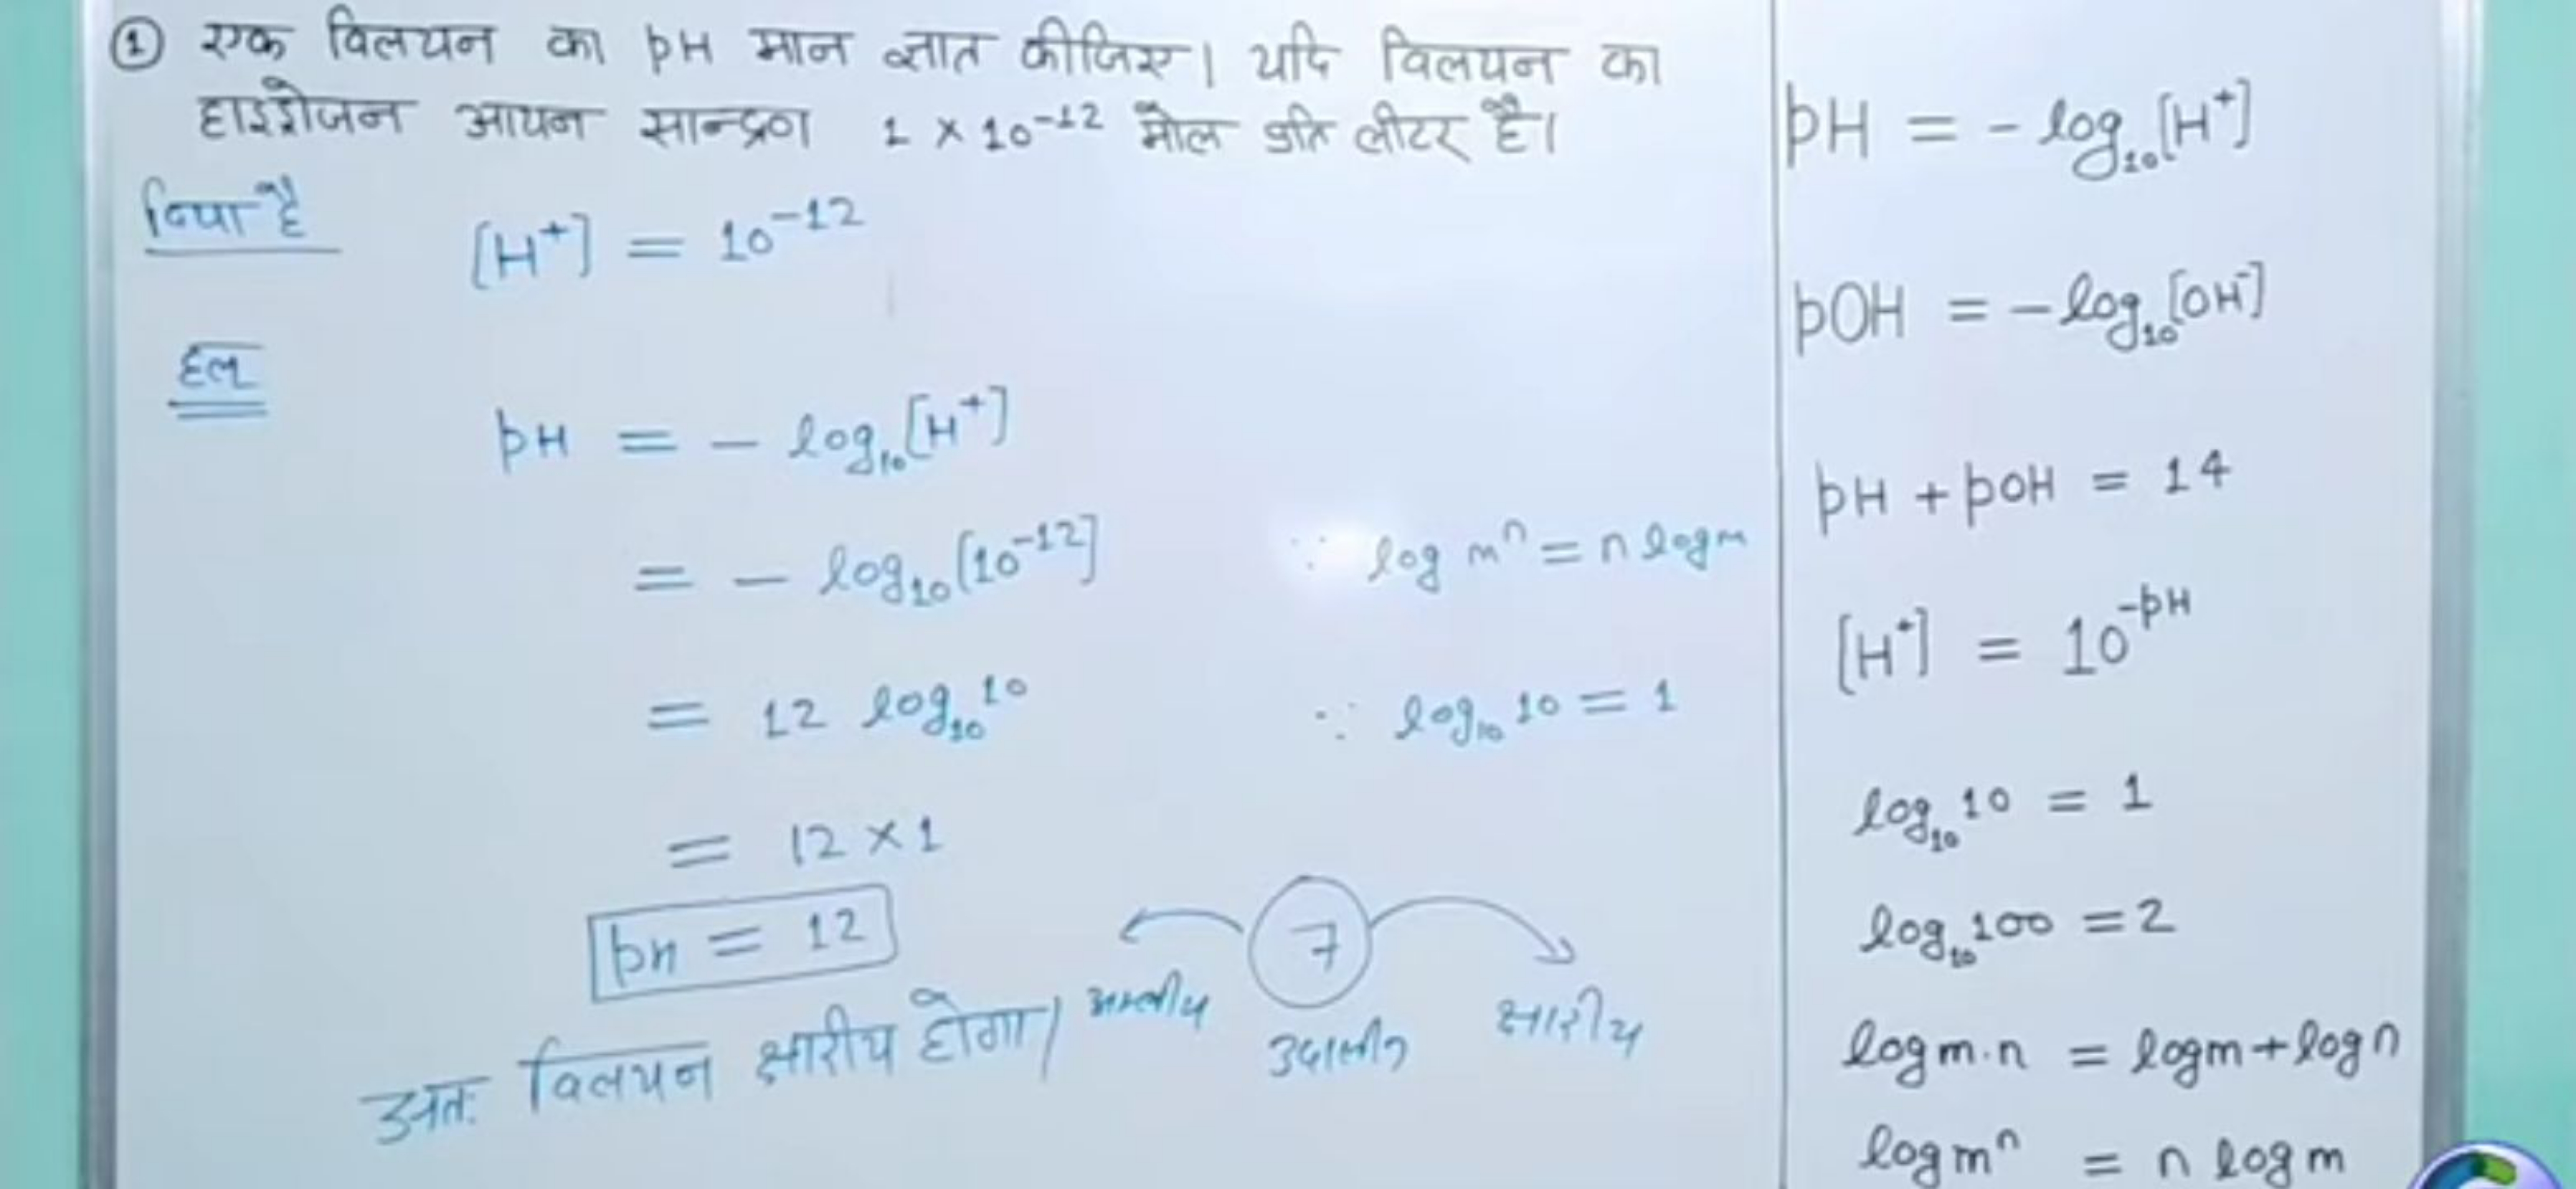 ① एक विलयन का pH मान ज्ञात कीजिए। यदि विलयन का
हाइड्रोजन आयन सान्द्रण 1 × 10⁻¹² मोल प्रति लीटर है।
दिया है
[H⁺] = 10⁻¹²
हल
pH = - log₁₀[H⁺]
= - log₁₀[10⁻¹²]
∵ log mⁿ = n log m
= 12 log₁₀10
∵ log₁₀ 10 = 1
= 12 × 1
pH = 12
7
अम्लीय
उदासीन
क्षारीय
अतः विलयन क्षारीय होगा।
pH = - log₁₀[H⁺]
pOH = - log₁₀[OH⁻]
pH + pOH = 14
[H⁺] = 10⁻ᵖᴴ
log₁₀10 = 1
log₁₀100 = 2
log m·n = log m + log n
log mⁿ = n log m